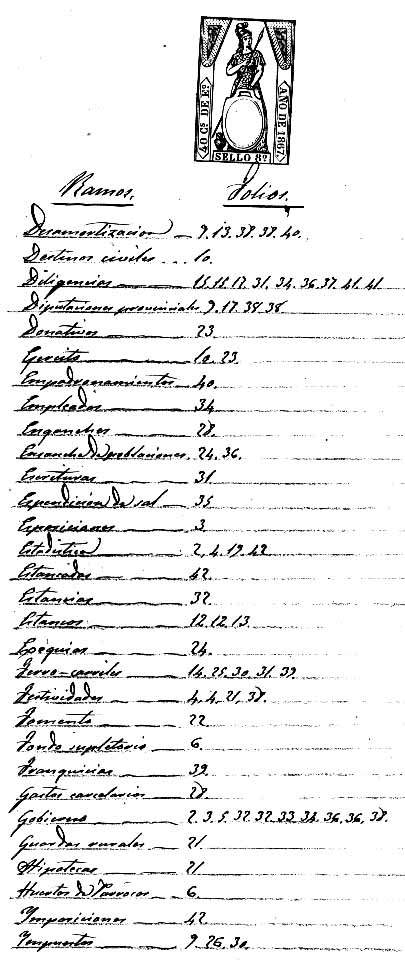 40 Cs DE Eo
AÑO DE 1867
SELLO 8º
Ramos. Folios.
Desamortizacion 9. 13. 38. 38. 40.
Destinos civiles 10.
Diligencias 15. 15. 17. 31. 34. 36. 37. 41. 41.
Diputaciones provinciales 9. 17. 38. 38
Donativos 23
Egercito 10. 23.
Empadronamientos 40.
Empleados 34
Enganches 28.
Ensanche de poblaciones 24. 36.
Escrituras 31.
Espendicion de sal 35
Esposiciones 3
Estadistica 2. 4. 19. 42
Estancadas 42.
Estancias 32
Estancos 12. 12. 13.
Exequias 24.
Ferro-carriles 14. 25. 30. 31. 39.
Festividades 4. 4. 21. 38.
Fomento 22
Fondo supletorio 6.
Franquicias 39.
Gastos carcelarios 28
Gobierno 2. 3. 5. 32. 32. 33. 34. 36. 36. 38.
Guardas rurales 21
Hipotecas 21
Huertos de Párrocos 6.
Imposiciones 42
Impuestos 9. 26. 30.